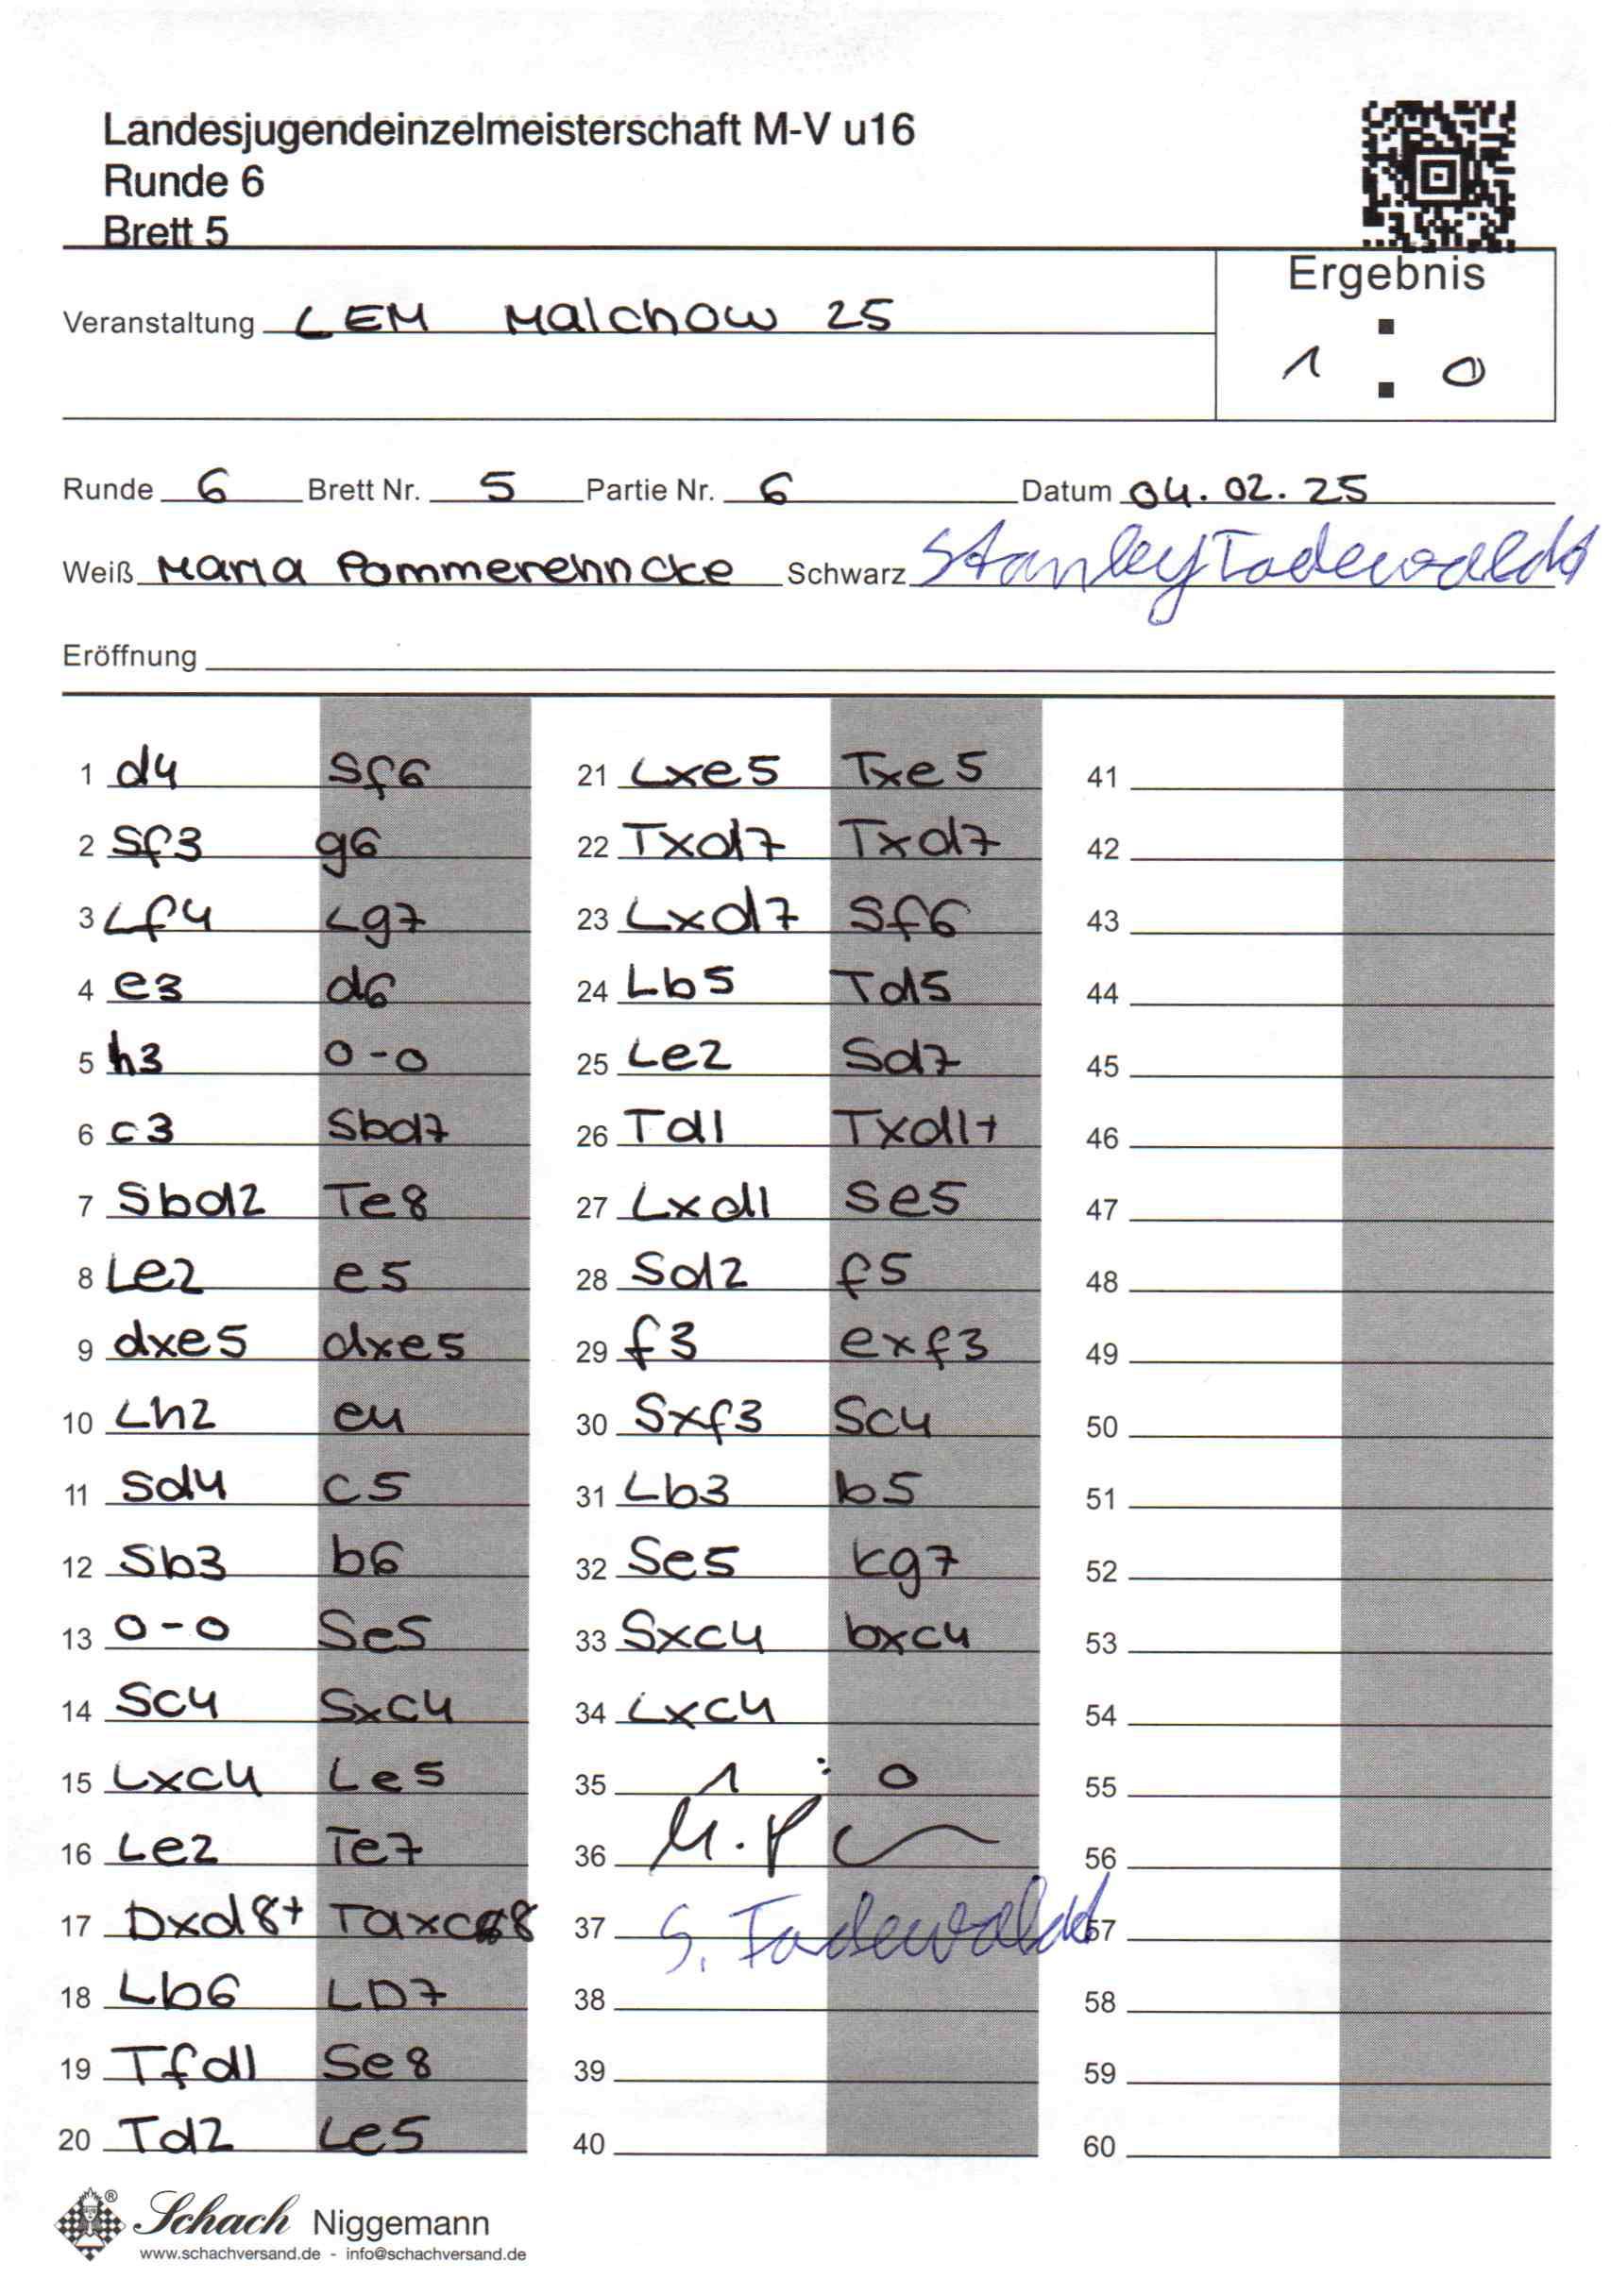 Landesjugendeinzelmeisterschaft M-V u16
Runde 6
Brett 5
Ergebnis
Veranstaltung LEM Malchow 25
1 : 0
Runde 6 Brett Nr. 5 Partie Nr. 6 Datum 04.02.25
Weiß Maria Pommerehncke Schwarz Stanley Tadewaldt
Eröffnung
1 d4 Sf6 21 Lxe5 Txe5 41
2 Sf3 g6 22 Txd7 Txd7 42
3 Lf4 Lg7 23 Lxd7 Sf6 43
4 e3 d6 24 Lb5 Td5 44
5 h3 0-0 25 Le2 Sd7 45
6 c3 Sbd7 26 Td1 Txd1+ 46
7 Sbd2 Te8 27 Lxd1 Se5 47
8 Le2 e5 28 Sd2 f5 48
9 dxe5 dxe5 29 f3 exf3 49
10 Lh2 e4 30 Sxf3 Sc4 50
11 Sd4 c5 31 Lb3 b5 51
12 Sb3 b6 32 Se5 kg7 52
13 0-0 Se5 33 Sxc4 bxc4 53
14 Sc4 Sxc4 34 Lxc4 54
15 Lxc4 Le5 35 1 : 0 55
16 Le2 Te7 36 M.P 56
17 Dxd8+ Taxd8 37 S. Tadewaldt 57
18 Lb6 LD7 38 58
19 Tfd1 Se8 39 59
20 Td2 Le5 40 60
Schach Niggemann
www.schachversand.de - info@schachversand.de